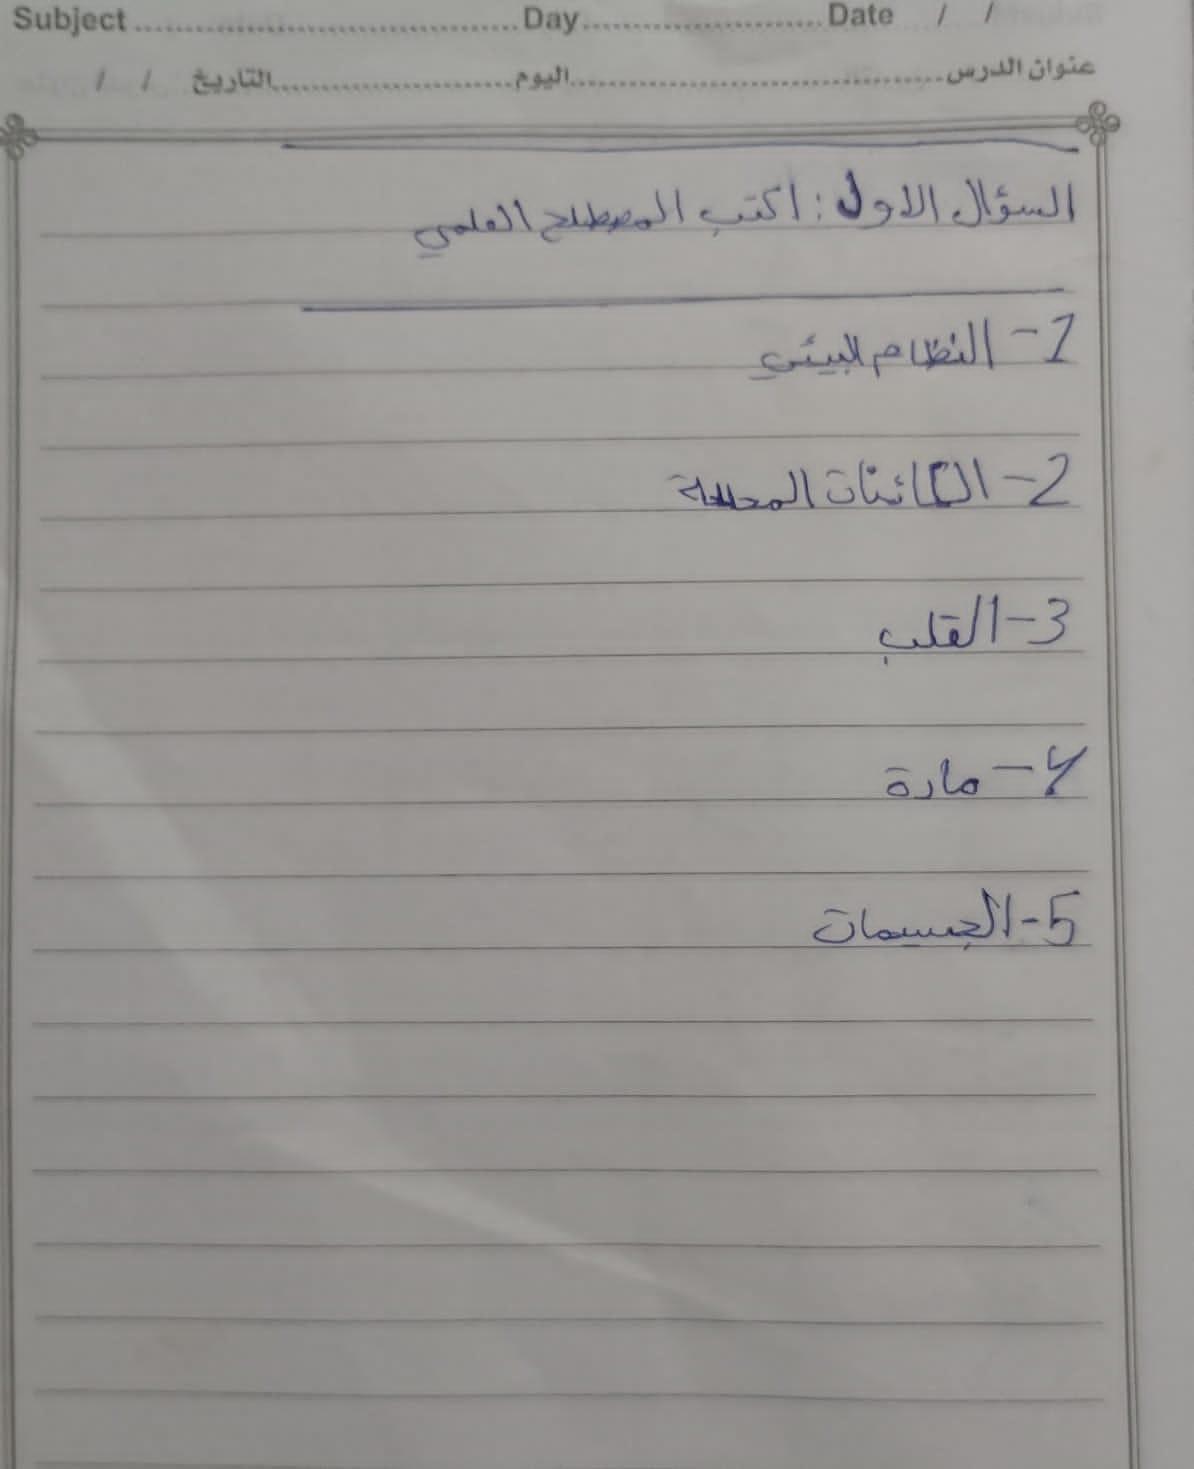 Subject ........ Day ........ Date / /
عنوان الدرس ........ اليوم ........ التاريخ / /
السؤال الاول : اكتب المصطلح العلمي
1- النظام البيئي
2- الكائنات المحللة
3- القلب
4- مادة
5- الجسيمات